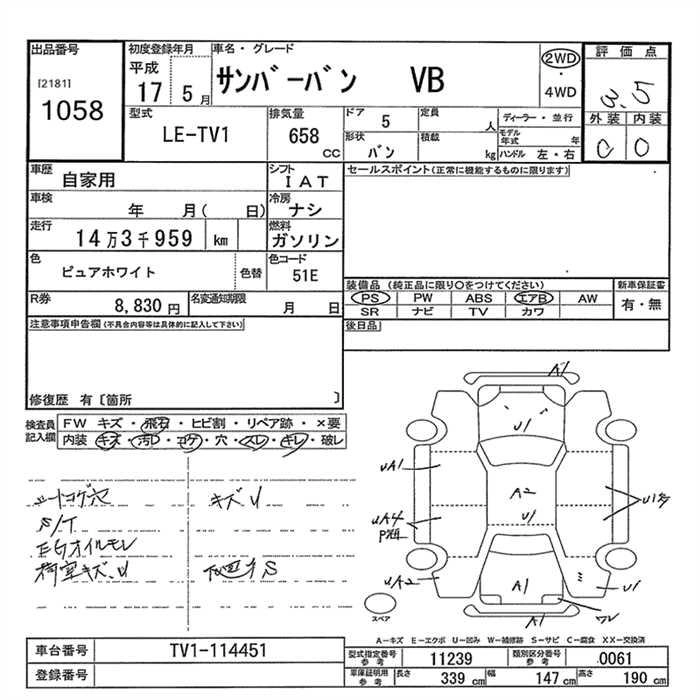 出品番号
[2181]
1058
初度登録年月
平成
17 5 月
車名・グレード
サンバーバン VB
2WD
・
4WD
評価点
3.5
外装 内装
C C
型式
LE-TV1
排気量
658
CC
ドア 5
形状
バン
定員
人
積載
kg
ディーラー・並行
モデル年式 年
ハンドル 左・右
車歴
自家用
シフト
IAT
セールスポイント(正常に機能するものに限ります)
車検
年 月( 日)
冷房
ナシ
走行
14万3千959 km
燃料
ガソリン
色
ピュアホワイト
色替
色コード
51E
装備品(純正品に限り○をつけてください)
PS PW ABS エアB AW
SR ナビ TV カワ
新車保証書
有・無
R券
8,830円
名変通知期限
月 日
後日品
注意事項申告欄(不具合内容等は具体的に記入して下さい)
修復歴 有〔箇所 〕
検査員
記入欄
FW キズ・飛石・ヒビ割・リペア跡・×要
内装 キズ・汚レ・コゲ・穴・スレ・キレ・破レ
シートコゲ穴
キズU
S/T
EGオイルモレ
荷室キズ.U
下廻りS
A1
U1
UA1
A2
U1キズ
UA4
U1
UA2
A1
U1
A1
W
スペア
A-キズ E-エクボ U-凹み W-補修跡 S-サビ C-腐食 XX-交換済
車台番号
TV1-114451
登録番号
型式指定番号
参考
11239
類別区分番号
参考
0061
車庫証明用
参考
長さ
339 cm
幅
147 cm
高さ
190 cm